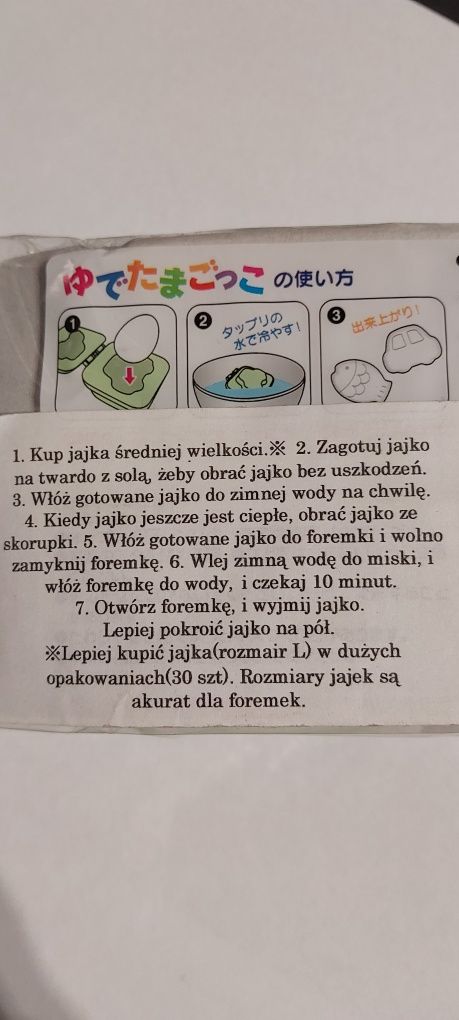 ゆでたまごっこ の使い方
1
2
タップリの
水で冷やす!
3
出来上がり!
1. Kup jajka średniej wielkości.※ 2. Zagotuj jajko
na twardo z solą, żeby obrać jajko bez uszkodzeń.
3. Włóż gotowane jajko do zimnej wody na chwilę.
4. Kiedy jajko jeszcze jest ciepłe, obrać jajko ze
skorupki. 5. Włóż gotowane jajko do foremki i wolno
zamyknij foremkę. 6. Wlej zimną wodę do miski, i
włóż foremkę do wody, i czekaj 10 minut.
7. Otwórz foremkę, i wyjmij jajko.
Lepiej pokroić jajko na pół.
※Lepiej kupić jajka(rozmair L) w dużych
opakowaniach(30 szt). Rozmiary jajek są
akurat dla foremek.